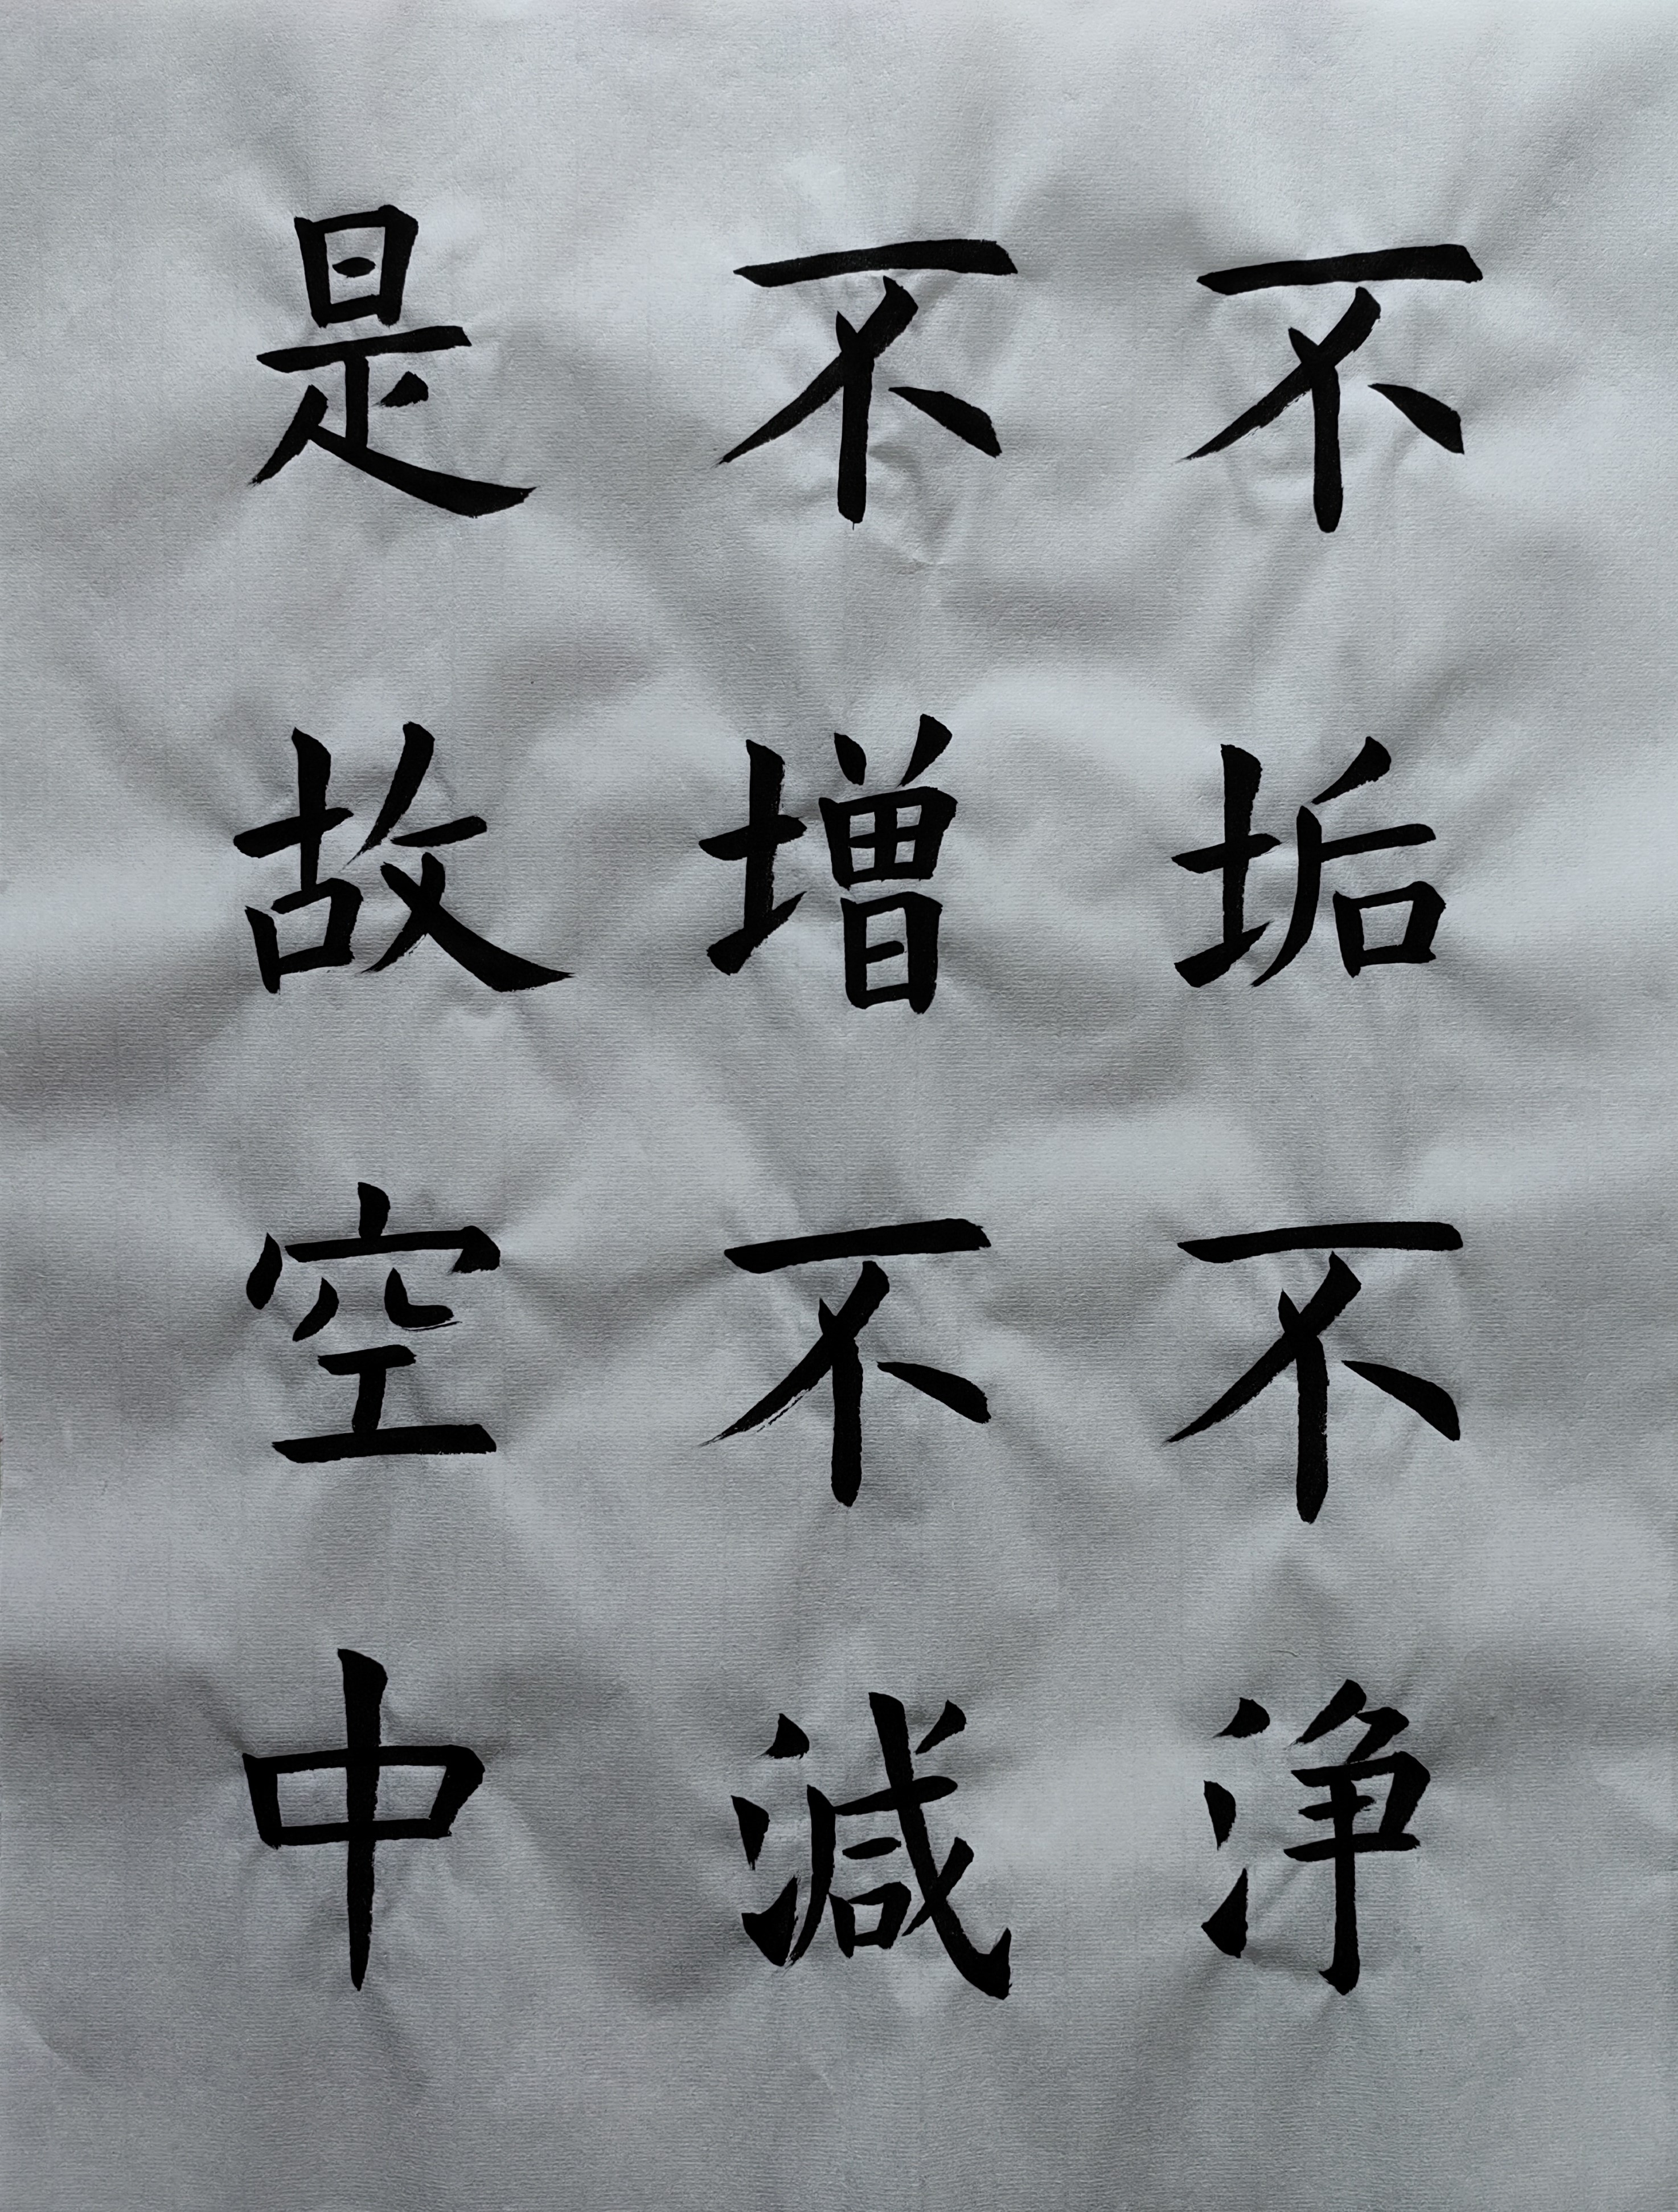 不垢不浄
不増不減
是故空中